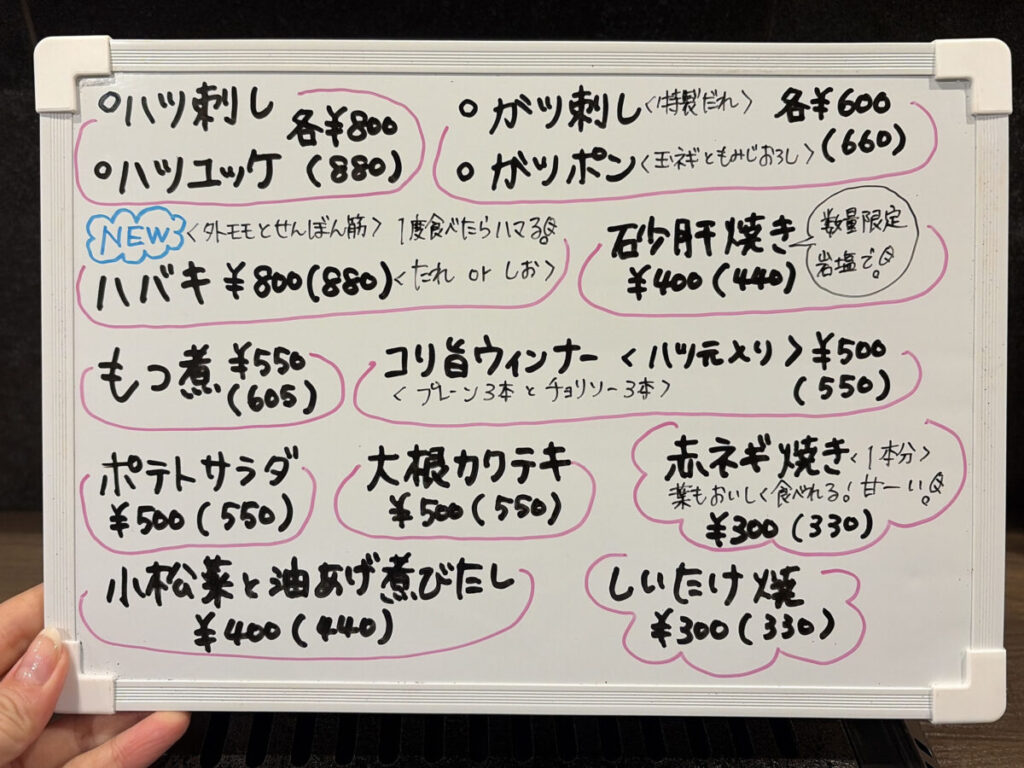 ○ハツ刺し
○ハツユッケ
各¥800
(880)
○ガツ刺し〈特製だれ〉
○ガツポン〈玉ネギともみじおろし〉
各¥600
(660)
NEW〈外モモとせんぼん筋〉1度食べたらハマる!
ハバキ ¥800(880)〈たれ or しお〉
砂肝焼き
¥400(440)
数量限定
岩塩で!
もつ煮 ¥550
(605)
コリ旨ウィンナー〈ハツ元入り〉¥500
〈プレーン3本とチョリソー3本〉
(550)
ポテトサラダ
¥500(550)
大根カクテキ
¥500(550)
赤ネギ焼き〈1本分〉
葉もおいしく食べれる!甘ーい!
¥300(330)
小松菜と油あげ煮びたし
¥400(440)
しいたけ焼
¥300(330)